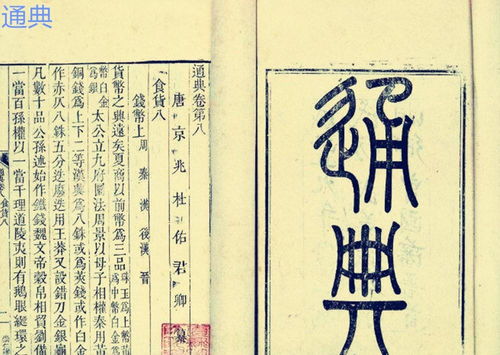 通典
通典
通典卷第八
唐京兆杜佑君卿
食貨八
錢幣上 周 秦 漢 後漢 晉
貨幣之興遠矣夏商以前幣為三品 珠玉為上 為中幣白金
幣白金為銀 太公立九府圜法周景以母子相權秦用黃
銅錢為上下二等漢為八銖或為莢錢或作白金
作赤仄八銖五分迭廢迭用王莽又設錯刀金銀龜
凡數十品公孫述始作鐵錢魏文帝穀帛相貿劉備
一當百孫權以一當千理道陵夷則有鵝眼綖環之